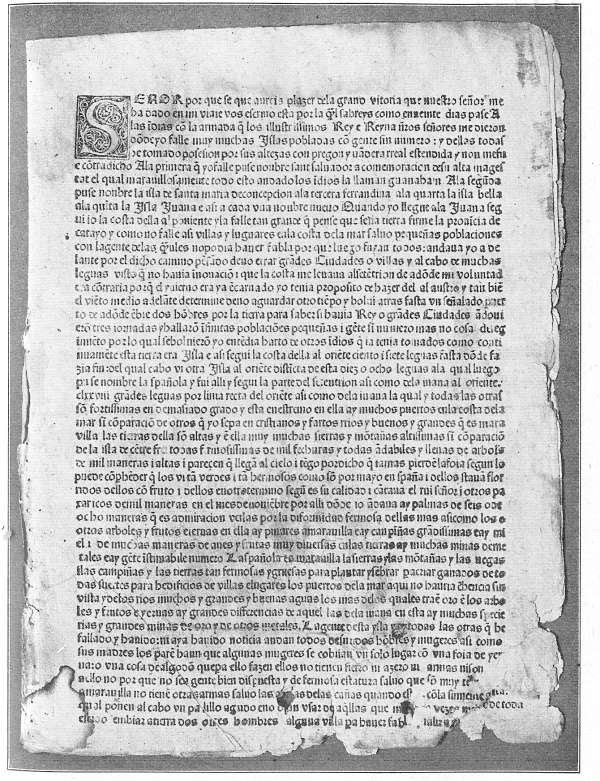 SEÑOR por que se que aureis plazer dela grand vitoria que nuestro señor me
ha dado en mi viaie vos escriuo esta por la q̃l sabreys como en ueinte dias pase A
las idias cõ la armada q̃ los illustrissimos Rey e Reyna ñros señores me dieron
dõde yo falle muy muchas Islas pobladas cõ gente sin numero : y dellas todas
he tomado posesion por sus altezas con pregon y uãdera real estendida y non me fu
e cõtradicho Ala primera q̃ yo falle puse nonbre sant saluador a comemoracion de su alta mages
tat el qual marauillosamente todo esto andado los idios la llaman guanaham Ala segũda
puse nonbre la isla de santa maria deconcepcion ala tercera ferrandina ala quarta la isla bella
ala quita la Isla Juana e asi a cada vna nonbre nueuo Quando yo llegue ala Juana seg
ui io la costa della al poniente yla falle tan grande q̃ pense que seria tierra firme la prouicia de
catayo y como no falle asi villas y luguares enla costa dela mar saluo pequeñas poblaciones
con lagente delas q̃uales nopodia hauer fabla por que luego fuyan todos: andaua yo a de
lante por el dicho camino pẽsado deno errar grãdes Ciudades o villas y al cabo de muchas
leguas visto q̃ no hauia inouacion i que la costa me leuaua alsetẽtrion de adõde mi voluntad
era cõtraria porq̃ el yuierno era ya ẽcarnado yo tenia proposito de hazer del al austro y tan biẽ
el viẽto medio adelãte determine deno aguardar otro tiẽpo y bolui atras fasta vn señalado puer
to de adõde ẽbie dos hõbres por la tierra para saber si hauia Rey o grãdes Ciudades ãdoui
erõ tres iornadas yhallarõ ifinitas poblaciões pequeñas i gẽte si numero mas no cosa de reg
imiẽto por lo qual sebolnierõ yo entẽdia harto de otros idios q̃ ia tenia tomados como conti
nuamẽte esta tierra era Isla e asi segui la costa della al oriẽte ciento i siete leguas fasta dõde fa
zia fin: del qual cabo vi otra Isla al oriẽte disticta de esta diez o ocho leguas ala qual luego
puse nombre la spañola y fui alli y segui la parte del setentrion asi como dela iuana al oriente.
clxxviii grãdes leguas por linia recta del oriẽte asi como dela iuana la qual y todas las otras
sõ fortissimas en demasiado grado y esta enestremo en ella ay muchos puertos enla costa dela
mar si cõparaciõ de otros q̃ yo sepa en cristianos y fartos rrios y buenos y grandes q̃ es mara
villa las tierras della sõ altas y ẽ ella muy muchas sierras y mõtañas altissimas si cõparaciõ
de la isla de cẽtre fre todas fermosissimas de mil fechuras y todas ãdabiles y llenas de arbols
de mil maneras i altas i parecen q̃ llegã al cielo i tẽgo pordicho q̃ iamas pierdẽ lafoia segun lo
puede cõphẽder q̃ los vi tã verdes i tã hermosos como sõ por mayo en spaña i dellos stauã flor
ridos dellos cõ fruto i dellos enotrotermino segũ es su calidad i cãtaua el rui señor i otros pa
xaricos demil maneras en el mes denouiẽbre por alli dõde io ãdaua ay palmas de seis ode
ocho maneras q̃ es admiracion verlas por la diformidad fermosa dellas mas asicomo los o
otros arboles y frutos eieruas en ella ay pinares amarauilla eay canpiñas grãdissimas eay mi
el i de muchas maneras de aues y frutas muy diuersas enlas tierras ay muchas minas deme
tales eay gẽte istimabile numero Laspañola es marauilla lasierras ylas mõtañas y las uegas
ilas campiñas y las tierras tan fermosas ygruesas para plantar ysẽbrar pacriar ganados de to
das suertes para hedificios de villas elugares los puertos dela mar aqui no hauria chencia sin
vista ydelos rios muchos y grandes y buenas aguas los mas delos quales traẽ oro ẽ los arbo
les y frutos e yeruas ay grandes differencias de aquel las dela iuana en esta ay muchas specie
rias y grandes minas de oro y de otros metales. Lagente desta ysla y detodas las otras q̃ he
fallado y hauido: ni aya hauido noticia andan todos desnudos hõbres y mugeres asi como
sus madres los parẽ haun que algunas mugeres se cobiian vn solo lugar cõ vna foia de yer
ua: o vna cosa dealgodõ quepa ello fazen ellos no tienen fierro ni azero ni armas ni son
aello no por que no sea gente bien dispuesta y de fermosa estatura saluo que sõ muy te
amarauilla no tienẽ otras armas saluo las armas delas cañas quando es cõla simiente
qual ponen al cabo vn palillo agudo eno usar de aq̃llas que m vezes me de toda
escido embiar atierra dos otres hombres alguna villa pa hauer fabl